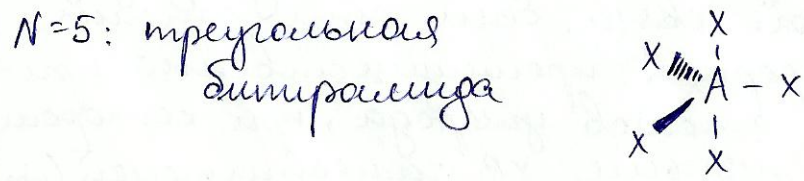 N=5: треугольная
бипирамида
X
X A - X
X
X